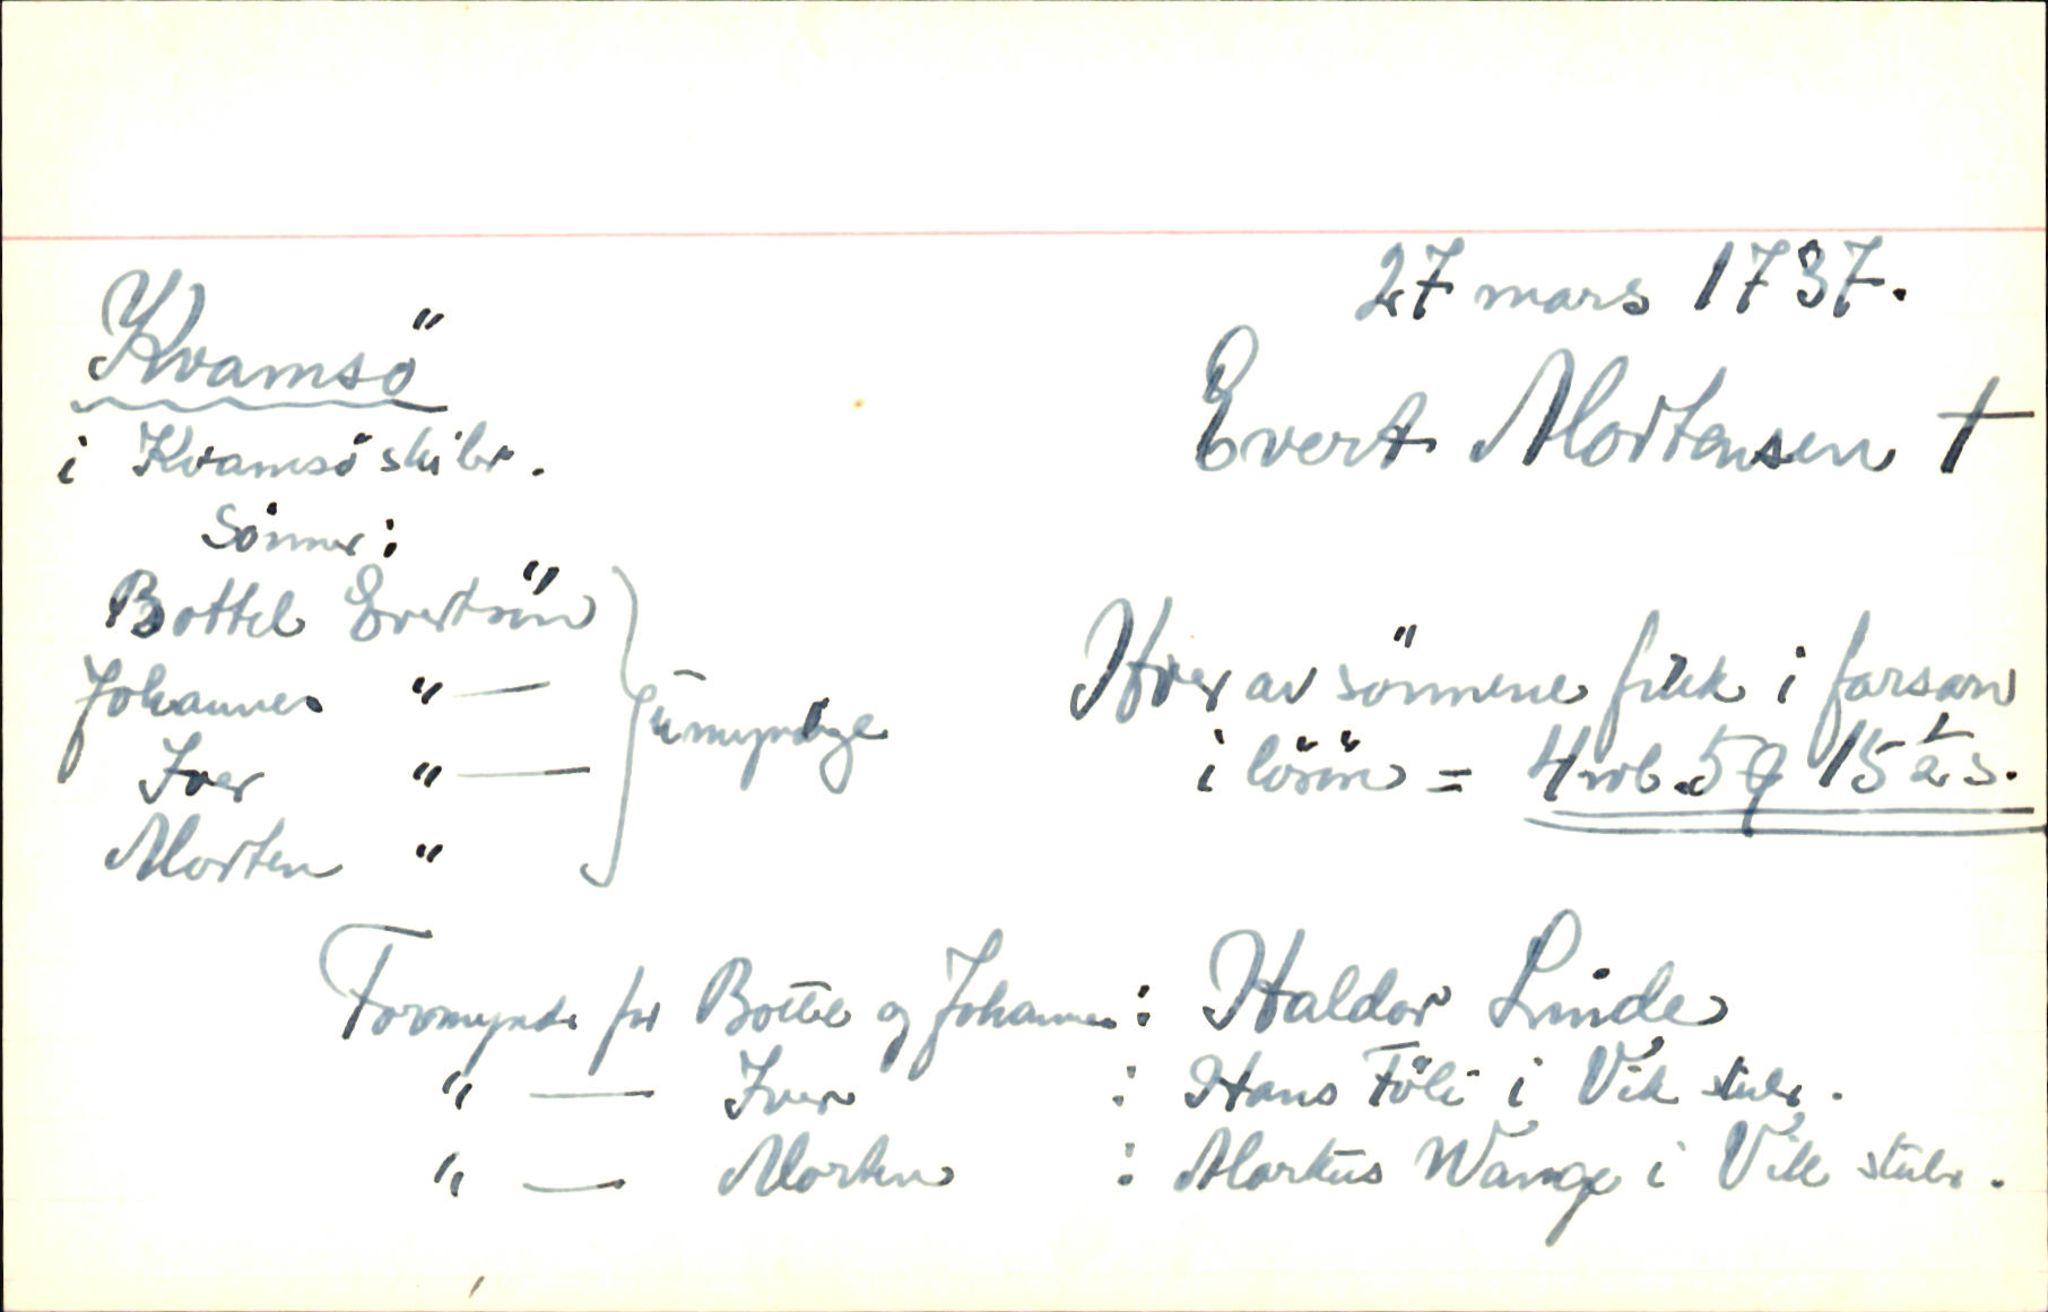 27 mars 1737.
Kvamsö
Evert Mortensen †
i Kvamsö skibr.
Sönner:
Bottel Evertsön
Johannes " —
Iver " —
Morten "
umyndige
Hver av sönnene fikk i farsarv
i lösöre = 4 rd. 5 15 1/2 s.
Formynd. for Bottel og Johannes: Haldor Linde
" — Iver : Hans Föli i Vik skibr.
" — Morten : Markus Wange i Vik skibr.